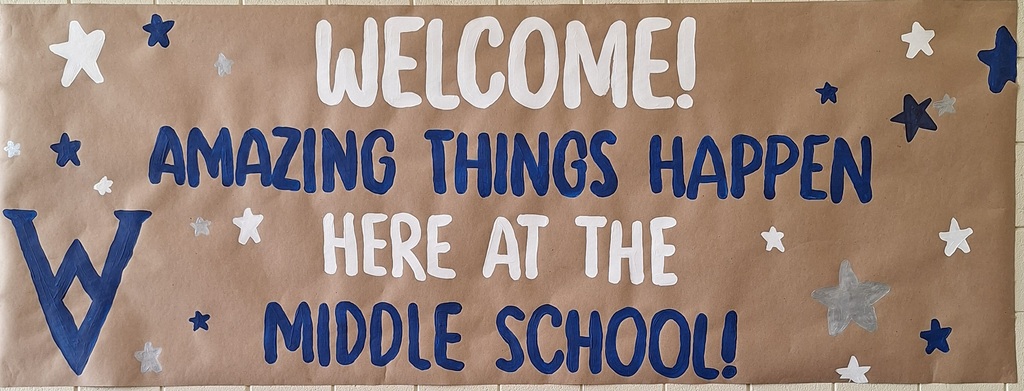 WELCOME!
AMAZING THINGS HAPPEN
HERE AT THE
W
MIDDLE SCHOOL!